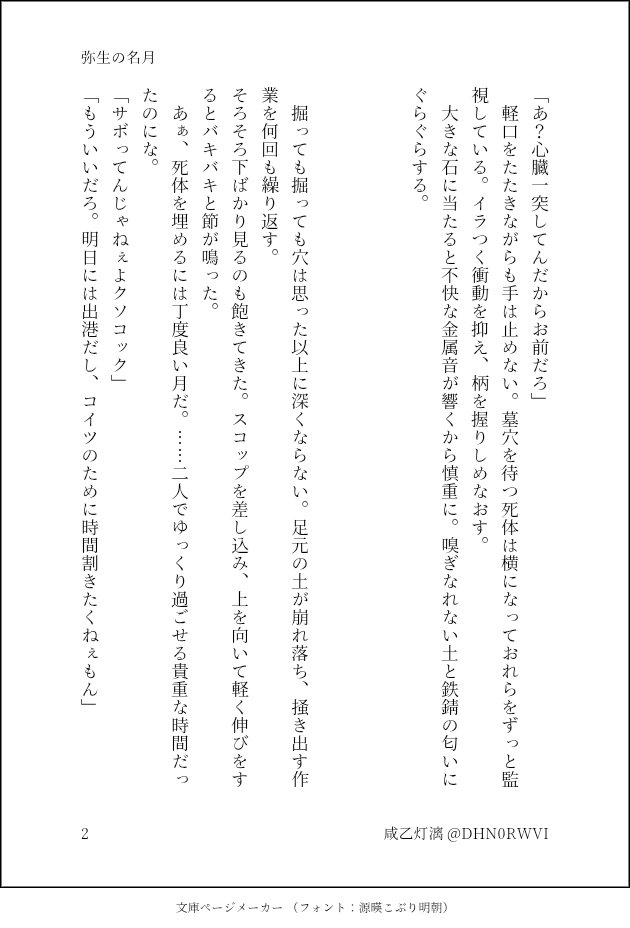 弥生の名月
「あ？心臓一突してんだからお前だろ」
　軽口をたたきながらも手は止めない。墓穴を待つ死体は横になっておれらをずっと監
視している。イラつく衝動を抑え、柄を握りしめなおす。
　大きな石に当たると不快な金属音が響くから慎重に。嗅ぎなれない土と鉄錆の匂いに
ぐらぐらする。
　掘っても掘っても穴は思った以上に深くならない。足元の土が崩れ落ち、掻き出す作
業を何回も繰り返す。
そろそろ下ばかり見るのも飽きてきた。スコップを差し込み、上を向いて軽く伸びをす
るとバキバキと節が鳴った。
　あぁ、死体を埋めるには丁度良い月だ。……二人でゆっくり過ごせる貴重な時間だっ
たのにな。
「サボってんじゃねぇよクソコック」
「もういいだろ。明日には出港だし、コイツのために時間割きたくねぇもん」
2
咸乙灯漓 @DHN0RWVI
文庫ページメーカー （フォント：源暎こぶり明朝）